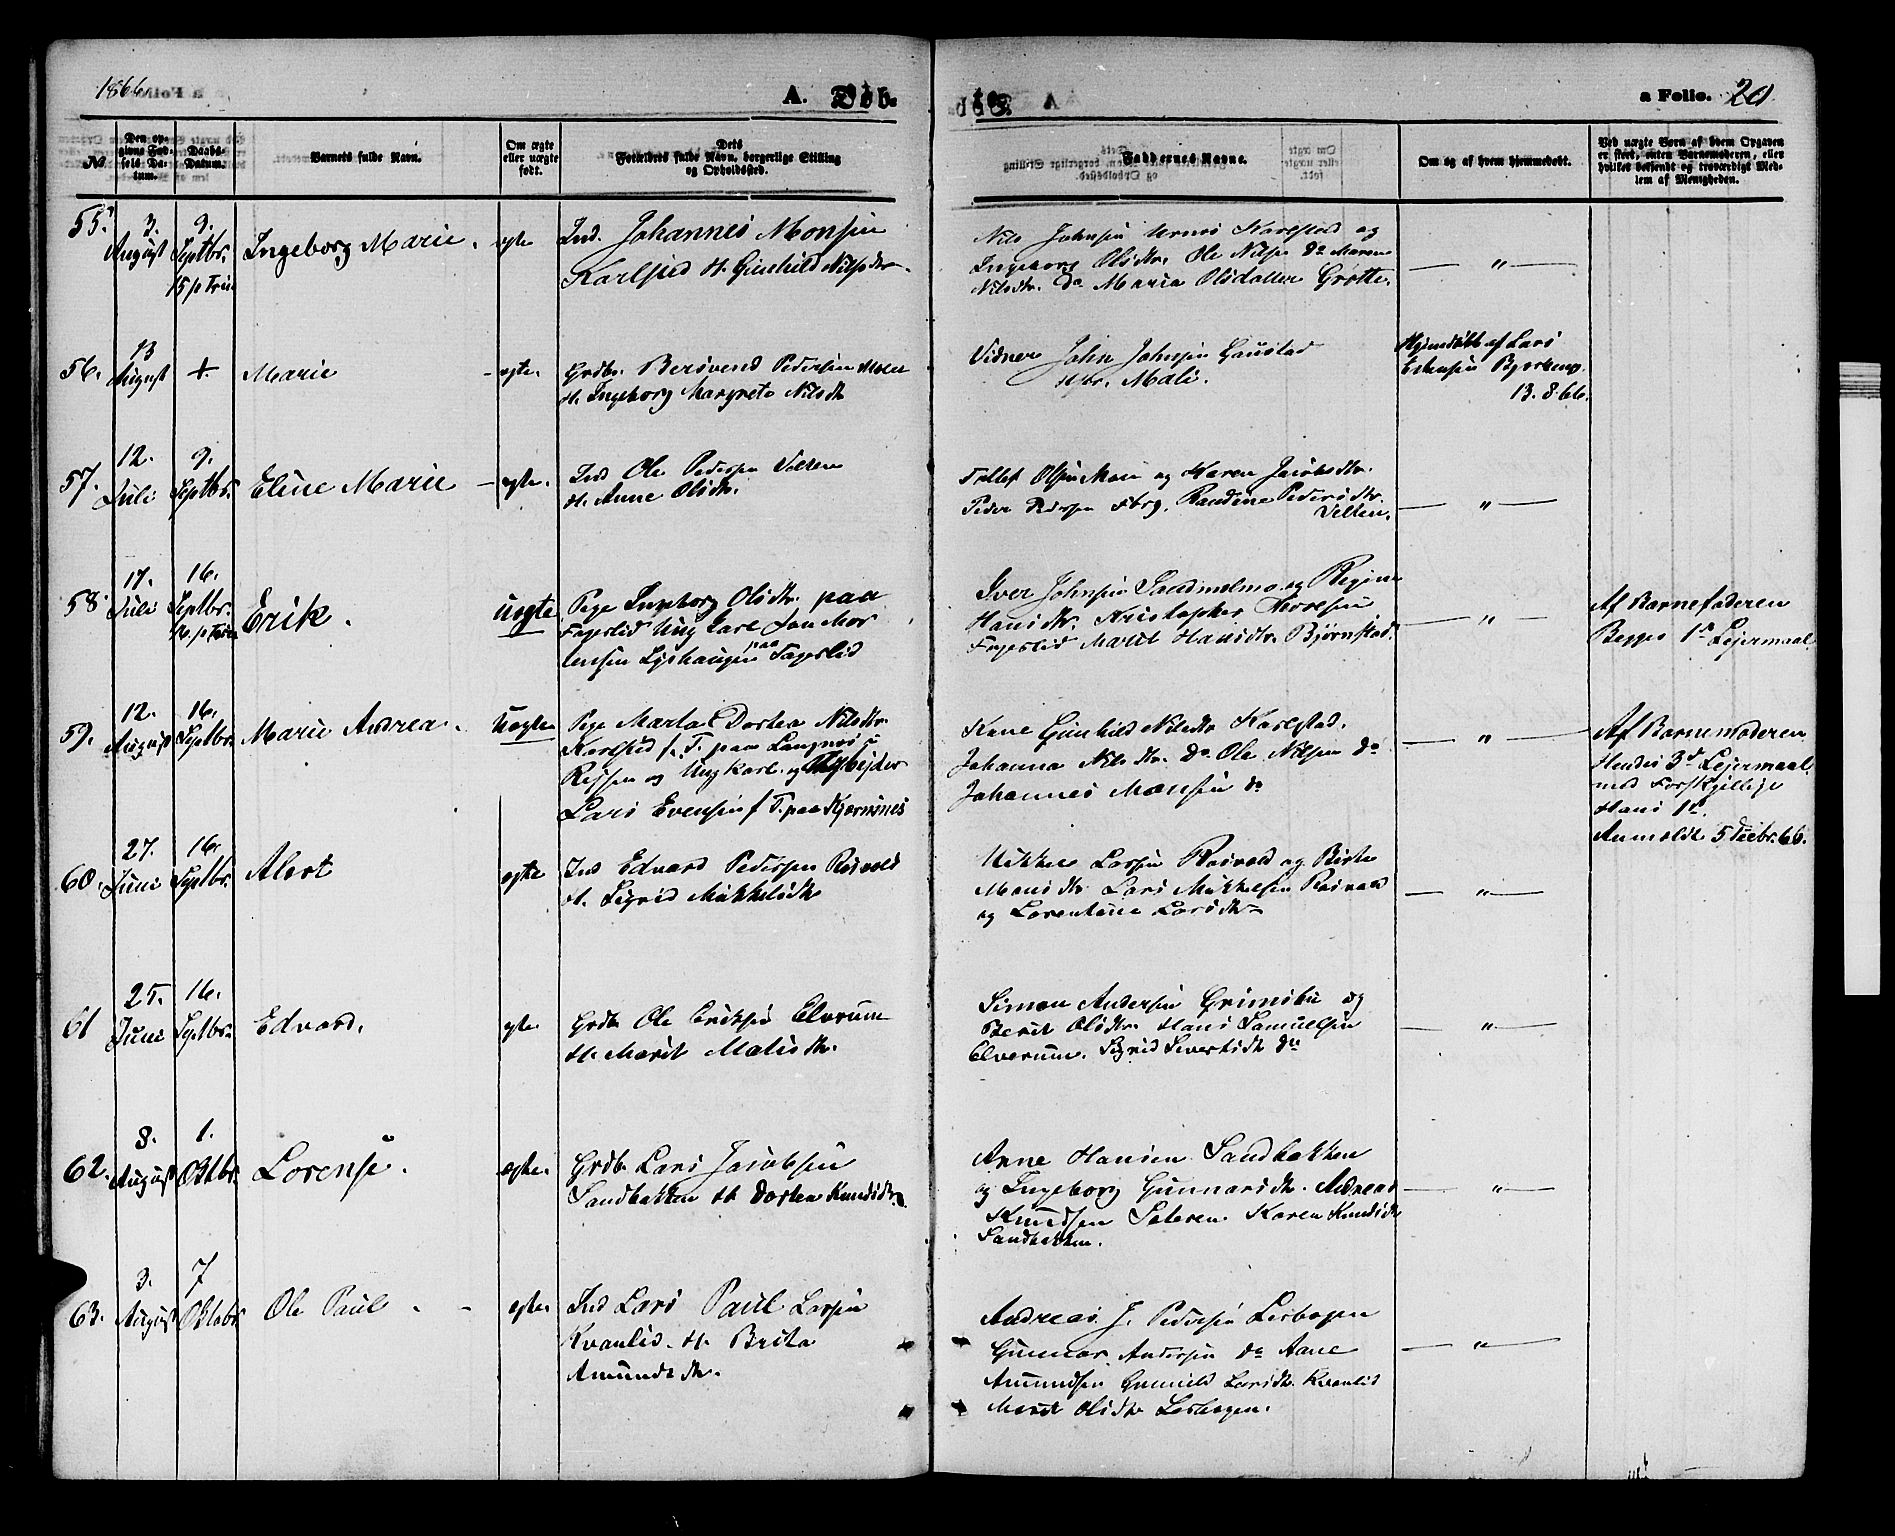 1866.
A. Døb-
te.
a Folio. 20
No.
Den op-
givne Fød-
sels Da-
tum.
Daabs-
Datum.
Barnets fulde Navn.
Om ægte
eller uægte
født.
Dets
Forældres fulde Navn, borgerlige Stilling
og Opholdssted.
Faddernes Navne.
Om og af hvem hjemmedøbt.
Ved uægte Børn af hvem Opgaven
er skeet, enten Barnemoderen, eller
hvilket bekjendt og troværdigt Med-
lem af Menigheden.
55.
3.
August
9.
Septbr.
15 p Trin
Ingeborg Marie.
egte
Ind. Johannes Monsen
Karlstad H. Gunhild Nilsdtr.
Nils Johnsen Karlstad og
Ingeborg Olsdtr. Ole Nilsen do Maren
Nilsdtr. do Maria Olsdatter Grøtte.
— " —
56.
13
August
+
Marie
egte.
Grdbr. Berøvend Pedersen Moen
H. Ingeborg Margrete Nilsdtr
Vidner John Johnsen Gaustad
Mali.
Hjemdøbt af Lars
Estensen Bjørkeng.
13.8.66.
57.
12.
Juli
9.
Septbr.
Eline Marie
egte.
Ind Ole Pedersen Velten
H. Anne Olsdtr.
Tollef Olsen Moen og Karen Jacobsdtr.
Peder Pedersen Randine Pedersdtr.
Velten.
— " —
58.
17.
Juli
16.
Septbr.
16. p Trin
Erik.
Uegte
Pige Ingeborg Olsdtr. paa
Fageslid Ung Karl Jon Mor
tensen paa Fageslid
Iver Johnsen Sandmelmo og
Hansdtr. Kristopher Thoresen
Fageslid Marit Hansdtr. Bjørnstad.
— " —
Af Barnefaderen
Begges 1ste Lejermaal.
59.
12.
August
16.
Septbr.
Marie Andrea.
Uegte
Pige Marta Dortea Nilsdtr.
Karlstad f. T. paa Langnes i
Reisen og Ung Karl og
Lars Evensen f T. paa Kjernsnes
Kone Gunhild Nilsdtr Karlstad.
Johanna Nilsdtr. do Ole Nilsen do
Johannes Monsen do
— " —
Af Barnemoderen
Hendes 3de Lejermaal
med Forskjellige
Hans 1ste
Anmeldt 5 Decbr. 66.
60.
27.
Juni
16.
Septbr.
Albert
egte
Ind Edvard Pedersen Rosvold
H. Sigrid Mikkelsdtr
Mikkel Larsen Rosvold og Birte
Monsdtr. Lars Mikkelsen Rosvold
og Lorentine Larsdtr
— " —
61
25.
Juni
16.
Septbr.
Edvard.
egte
Grdbr Ole Eriksen Elverum
H. Marit Matisdtr.
Simon Andersen Grimsbu og
Berit Olsdtr. Hans Samuelsen
Elverum. Sigrid Sivertsdtr do
— " —
62.
8.
August
1.
Oktbr.
Lorense.
egte.
Grdbr Lars Jacobsen
Sandbakken H. Dortea Knudsdtr.
Arne Hansen Sandbakken
og Ingeborg Gunnarsdtr. Andreas
Knudsen Seteren. Karen Knudsdtr
Sandbakken.
— " —
63.
3.
August
7
Oktobr
Ole Paul
egte.
Ind Lars Paul Larsen
Kvanlid. H. Brita
Amundsdtr.
Andreas J. Pedersen Lersbogen
Gunnar Andersen do Arne
Amundsen Gunnild Larsdtr. Kvanlid
Marit Olsdtr Lersbogen.
— " —